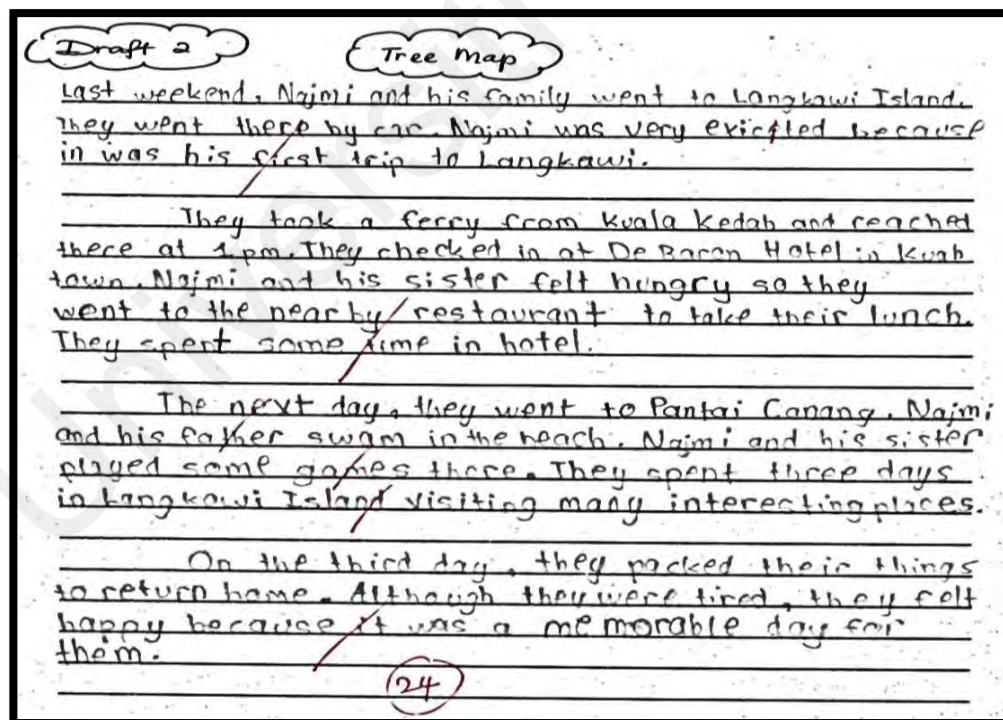 Draft 2
Tree Map
Last weekend, Najmi and his family went to Langkawi Island.
They went there by car. Najmi was very exicted because
in was his first trip to Langkawi.
They took a ferry from Kuala Kedah and reached
there at 1pm. They checked in at De Baron Hotel in Kuah
town. Najmi and his sister felt hungry so they
went to the near by restaurant to take their lunch.
They spent some time in hotel.
The next day, they went to Pantai Canang. Najmi
and his father swam in the beach. Najmi and his sister
played some games there. They spent three days
in Langkawi Island visiting many interesting places.
On the third day, they packed their things
to return home. Although they were tired, they felt
happy because it was a memorable day for
them.
24